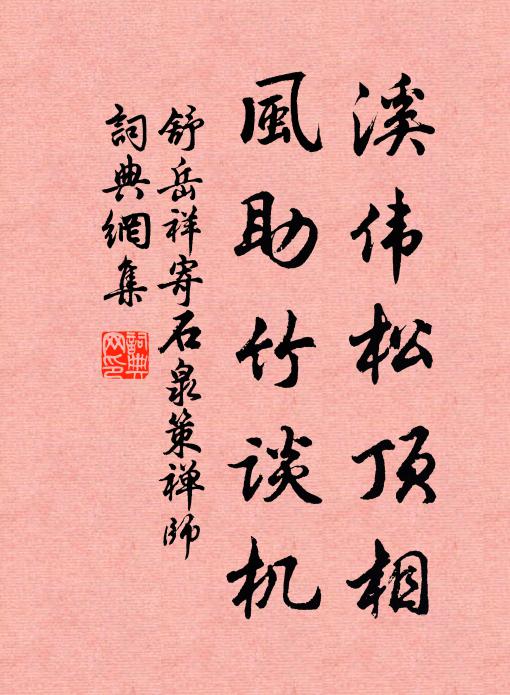 溪伟松顶相
風助竹谈机
舒岳祥寄石泉策禅师
詞典網集
詞典网印